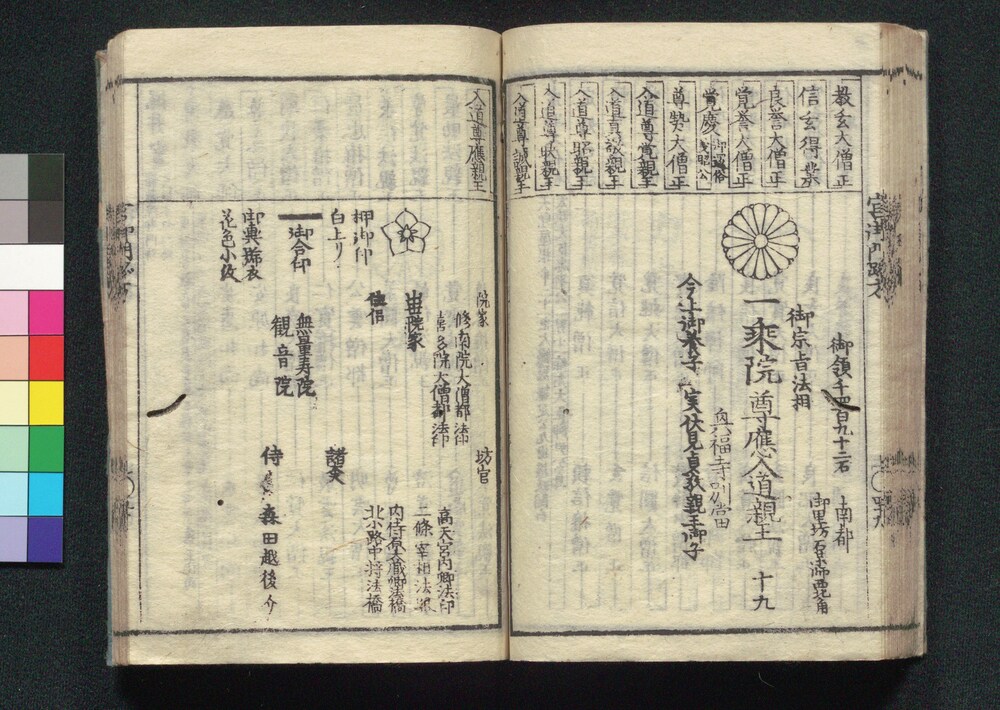 教玄大僧正
信玄得業
良誉大僧正
覚誉大僧正
覚慶
御還俗
義昭公
尊勢大僧正
入道尊覚親王
入道真敬親王
入道尊昭親王
入道尊映親王
入道尊誠親王
御領千四百九十二石
南都
御里坊石薬師西北角
御宗旨法相
一乗院尊應入道親王
十九
興福寺別當
今上御養子
実伏見貞敬親王御子
入道尊應親王
院家
修南院大僧都法印
喜多院大僧都法印
出世院家
住侶
坊官
高天宮内卿法印
二條宰相法眼
内侍原大蔵卿法橋
北小路中将法橋
押御印
白上り
諸大夫
御合印
無量寿院
観音院
侍
森田越後介
花色小紋